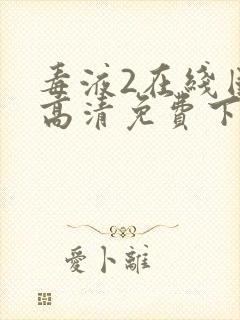 毒液2在线
高清免費下
愛卜離